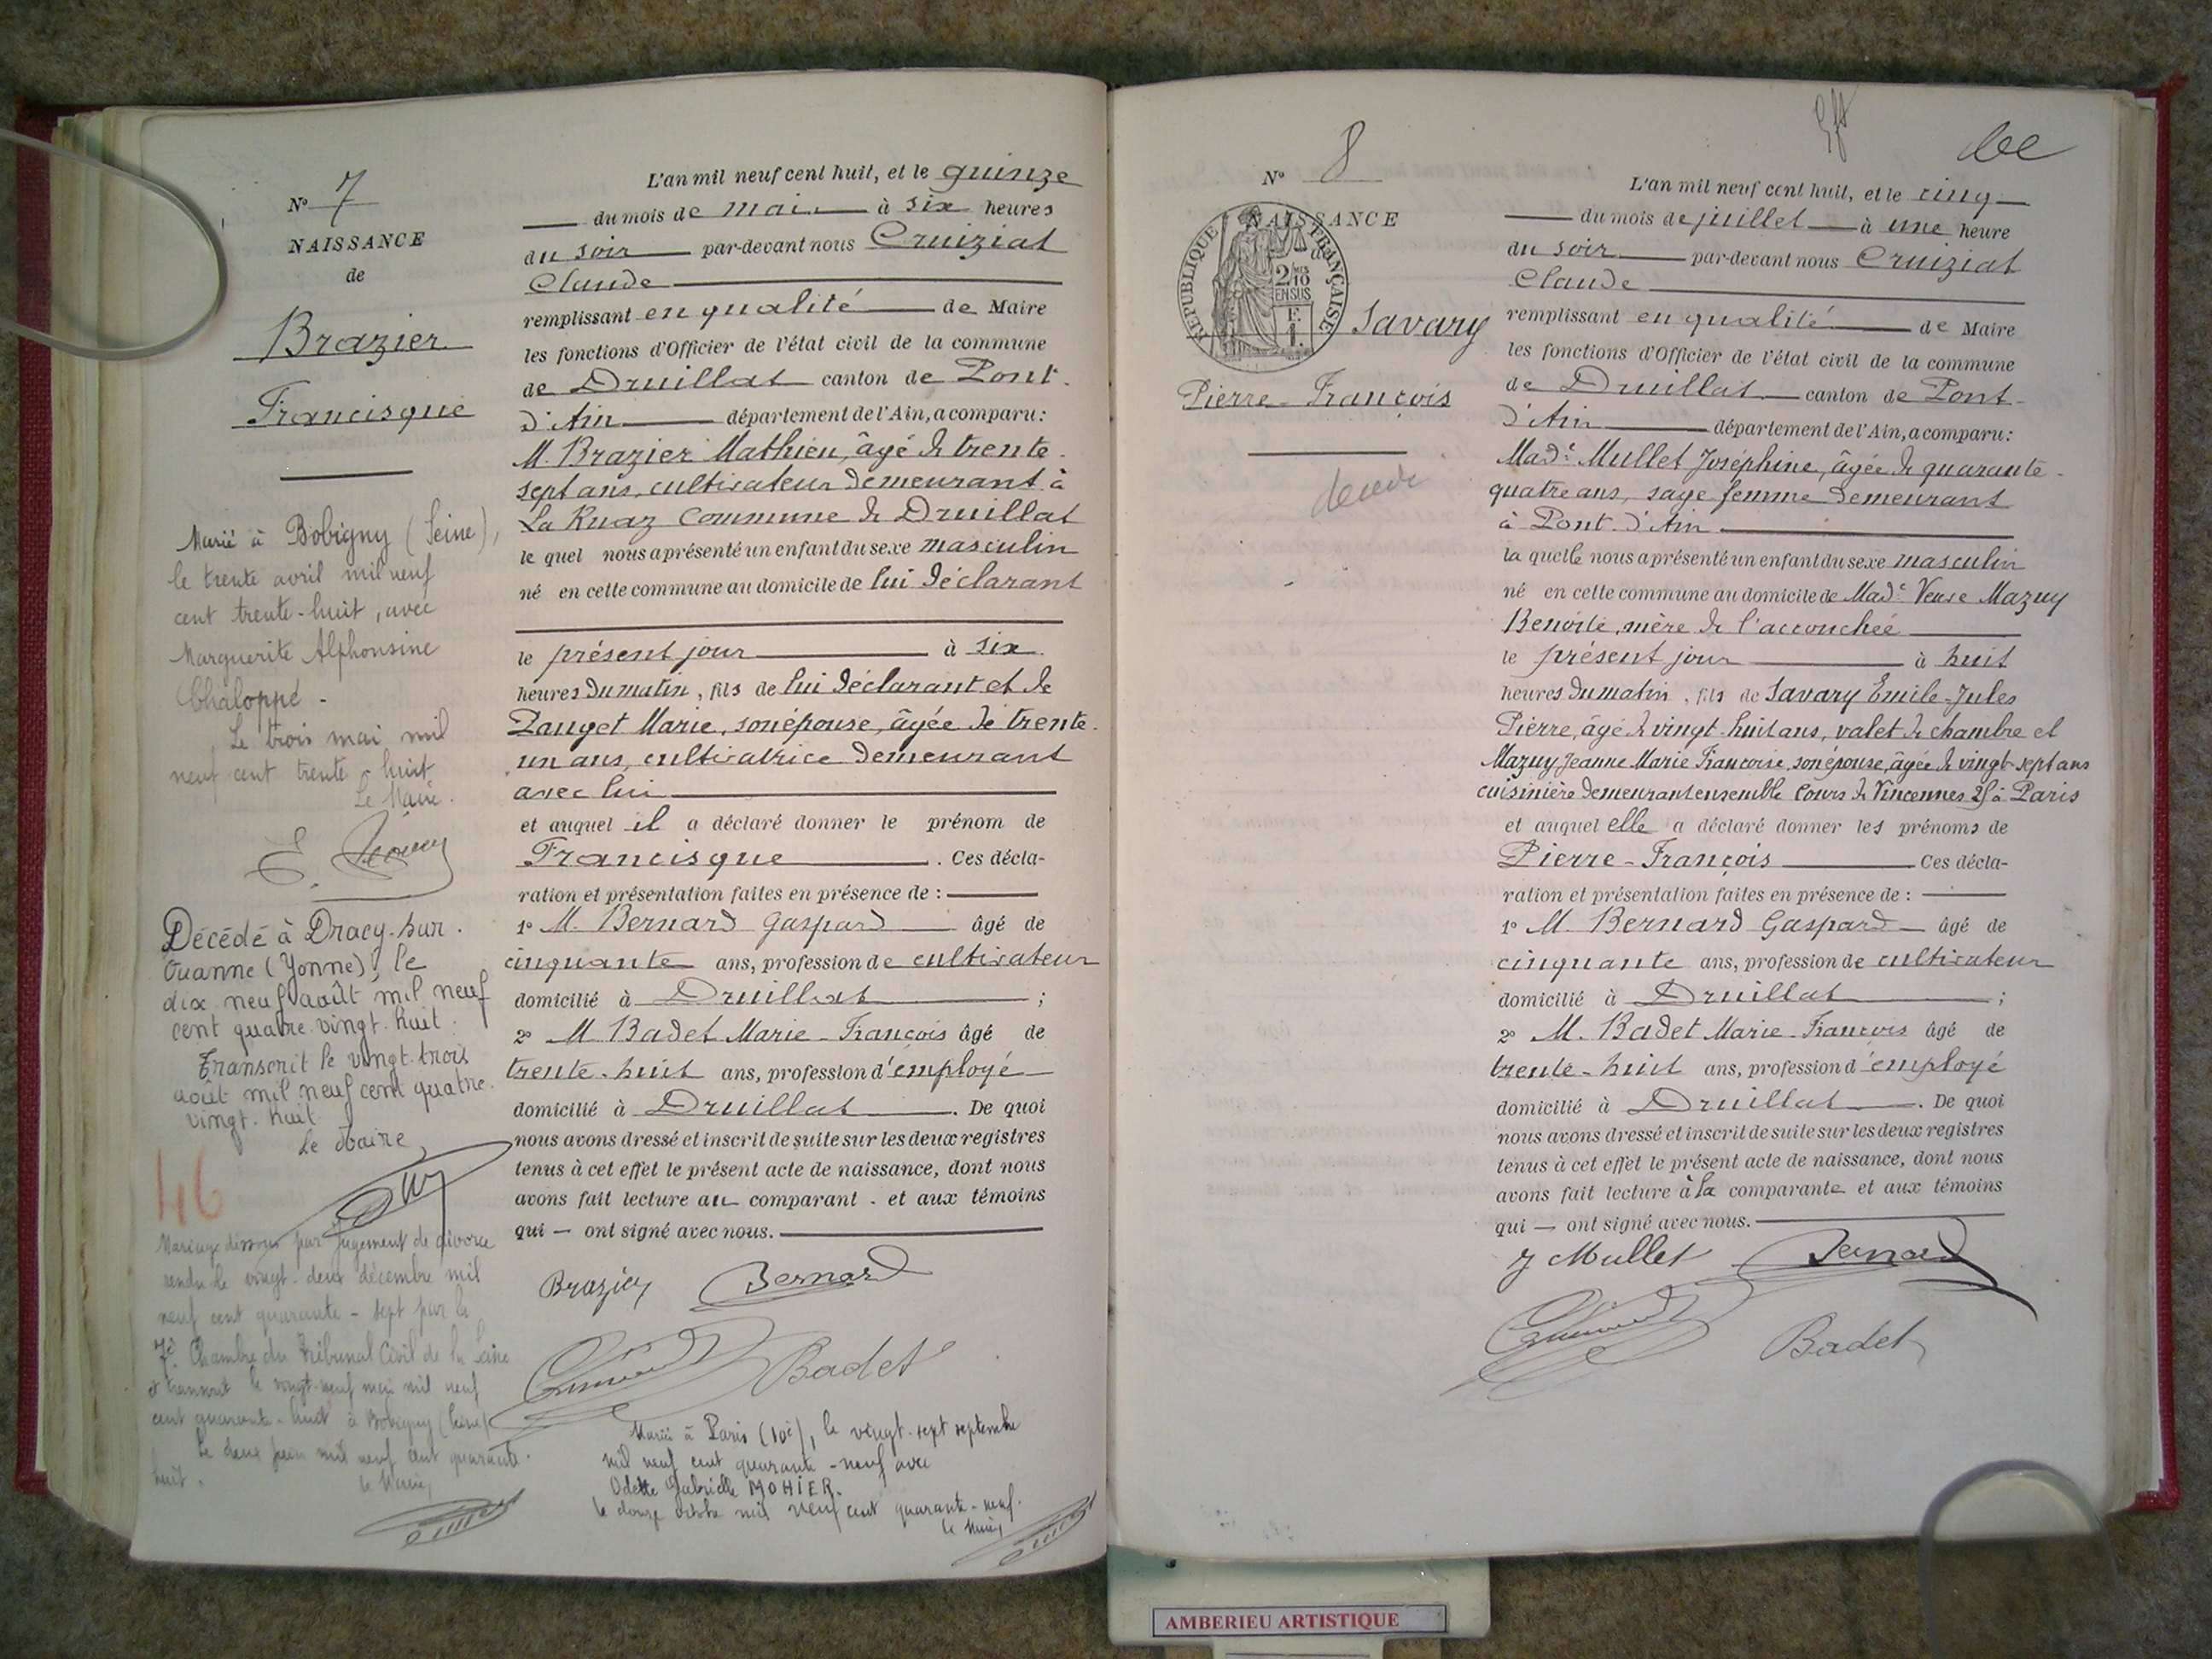 N° 7
NAISSANCE
de
Brazier
Francisque
Marié à Bobigny (Seine),
le trente avril mil neuf
cent trente-huit, avec
Marguerite Alphonsine
Chaloppé -
Le trois mai mil
neuf cent trente-huit
Le Maire.
Décédé à Dracy-sur-
Ouanne (Yonne), le
dix neuf août mil neuf
cent quatre-vingt-huit.
Transcrit le vingt-trois
août mil neuf cent quatre-
vingt-huit.
Le Maire,
46
Mariage dissous par jugement de divorce
rendu le vingt-deux décembre mil
neuf cent quarante-sept par la
7e Chambre du Tribunal Civil de la Seine
et transcrit le vingt-neuf mai mil neuf
cent quarante-huit à Bobigny (Seine)
Le deux juin mil neuf cent quarante-
huit.
le Maire,
L'an mil neuf cent huit, et le quinze
du mois de mai à six heures
du soir par-devant nous Cruiziat
Claude
remplissant en qualité de Maire
les fonctions d'Officier de l'état civil de la commune
de Druillat canton de Pont-
d'Ain département de l'Ain, a comparu:
M. Brazier Mathieu, âgé de trente-
sept ans, cultivateur demeurant à
La Ruaz Commune de Druillat
le quel nous a présenté un enfant du sexe masculin
né en cette commune au domicile de lui déclarant
le présent jour à six
heures du matin, fils de lui déclarant et de
Pauget Marie, son épouse, âgée de trente-
un ans, cultivatrice demeurant
avec lui
et auquel il a déclaré donner le prénom de
Francisque. Ces décla-
ration et présentation faites en présence de :
1° M. Bernard Gaspard âgé de
cinquante ans, profession de cultivateur
domicilié à Druillat ;
2° M. Badet Marie-François âgé de
trente-huit ans, profession d'employé
domicilié à Druillat. De quoi
nous avons dressé et inscrit de suite sur les deux registres
tenus à cet effet le présent acte de naissance, dont nous
avons fait lecture au comparant - et aux témoins
qui — ont signé avec nous.
Brazier Bernard
Badet
Marié à Paris (10e), le vingt-sept septembre
mil neuf cent quarante-neuf avec
Odette Gabrielle MOHIER.
le douze octobre mil neuf cent quarante-neuf.
le Maire,
be
N° 8
NAISSANCE
de
RÉPUBLIQUE FRANÇAISE
2/10
EN SUS
Savary
Pierre-François
L'an mil neuf cent huit, et le cinq
du mois de juillet à une heure
du soir par-devant nous Cruiziat
Claude
remplissant en qualité de Maire
les fonctions d'Officier de l'état civil de la commune
de Druillat canton de Pont-
d'Ain département de l'Ain, a comparu:
Made Mullet Joséphine, âgée de quarante-
quatre ans, sage femme demeurant
à Pont-d'Ain
la quelle nous a présenté un enfant du sexe masculin
né en cette commune au domicile de Made Veuve Mazuy
Benoite, mère de l'accouchée
le présent jour à huit
heures du matin, fils de Savary Emile-Jules
Pierre, âgé de vingt-huit ans, valet de chambre et
Mazuy Jeanne Marie Françoise, son épouse, âgée de vingt-sept ans
cuisinière demeurant ensemble Cours de Vincennes 25 à Paris
et auquel elle a déclaré donner les prénoms de
Pierre-François Ces décla-
ration et présentation faites en présence de :
1° M. Bernard Gaspard âgé de
cinquante ans, profession de cultivateur
domicilié à Druillat ;
2° M. Badet Marie-François âgé de
trente-huit ans, profession d'employé
domicilié à Druillat. De quoi
nous avons dressé et inscrit de suite sur les deux registres
tenus à cet effet le présent acte de naissance, dont nous
avons fait lecture à la comparante et aux témoins
qui — ont signé avec nous.
J Mullet Bernard
Badet
AMBERIEU ARTISTIQUE